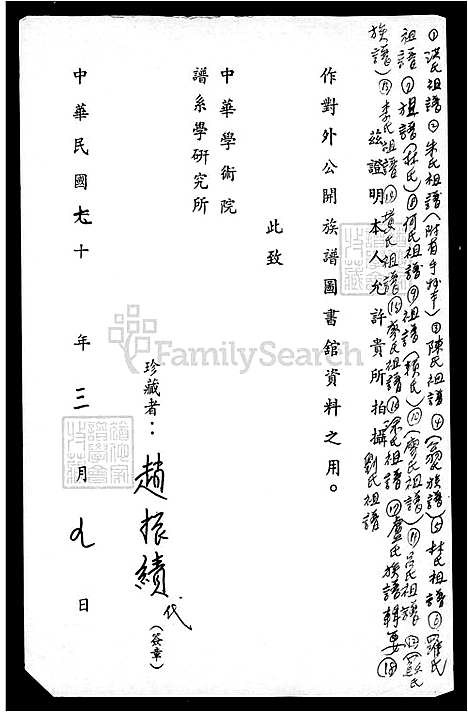 ①洪氏祖譜②朱氏祖譜(附有手抄本)③陳氏祖譜④ 族譜)⑤林氏祖譜⑥羅氏
祖譜⑦祖譜(林氏)⑧何氏祖譜⑨祖譜(賴氏)⑩(廖氏祖譜)⑪呂氏祖譜⑫蘇氏
族譜)⑬李氏祖譜⑭黃氏祖譜⑮廖氏祖譜⑯ 氏祖譜⑰盧氏族譜輯要⑱
劉氏祖譜
茲證明本人允許貴所拍攝
作對外公開族譜圖書館資料之用。
此致
中華學術院
譜系學研究所
珍藏者：趙振績代(簽章)
中華民國七十年三月九日
FamilySearch